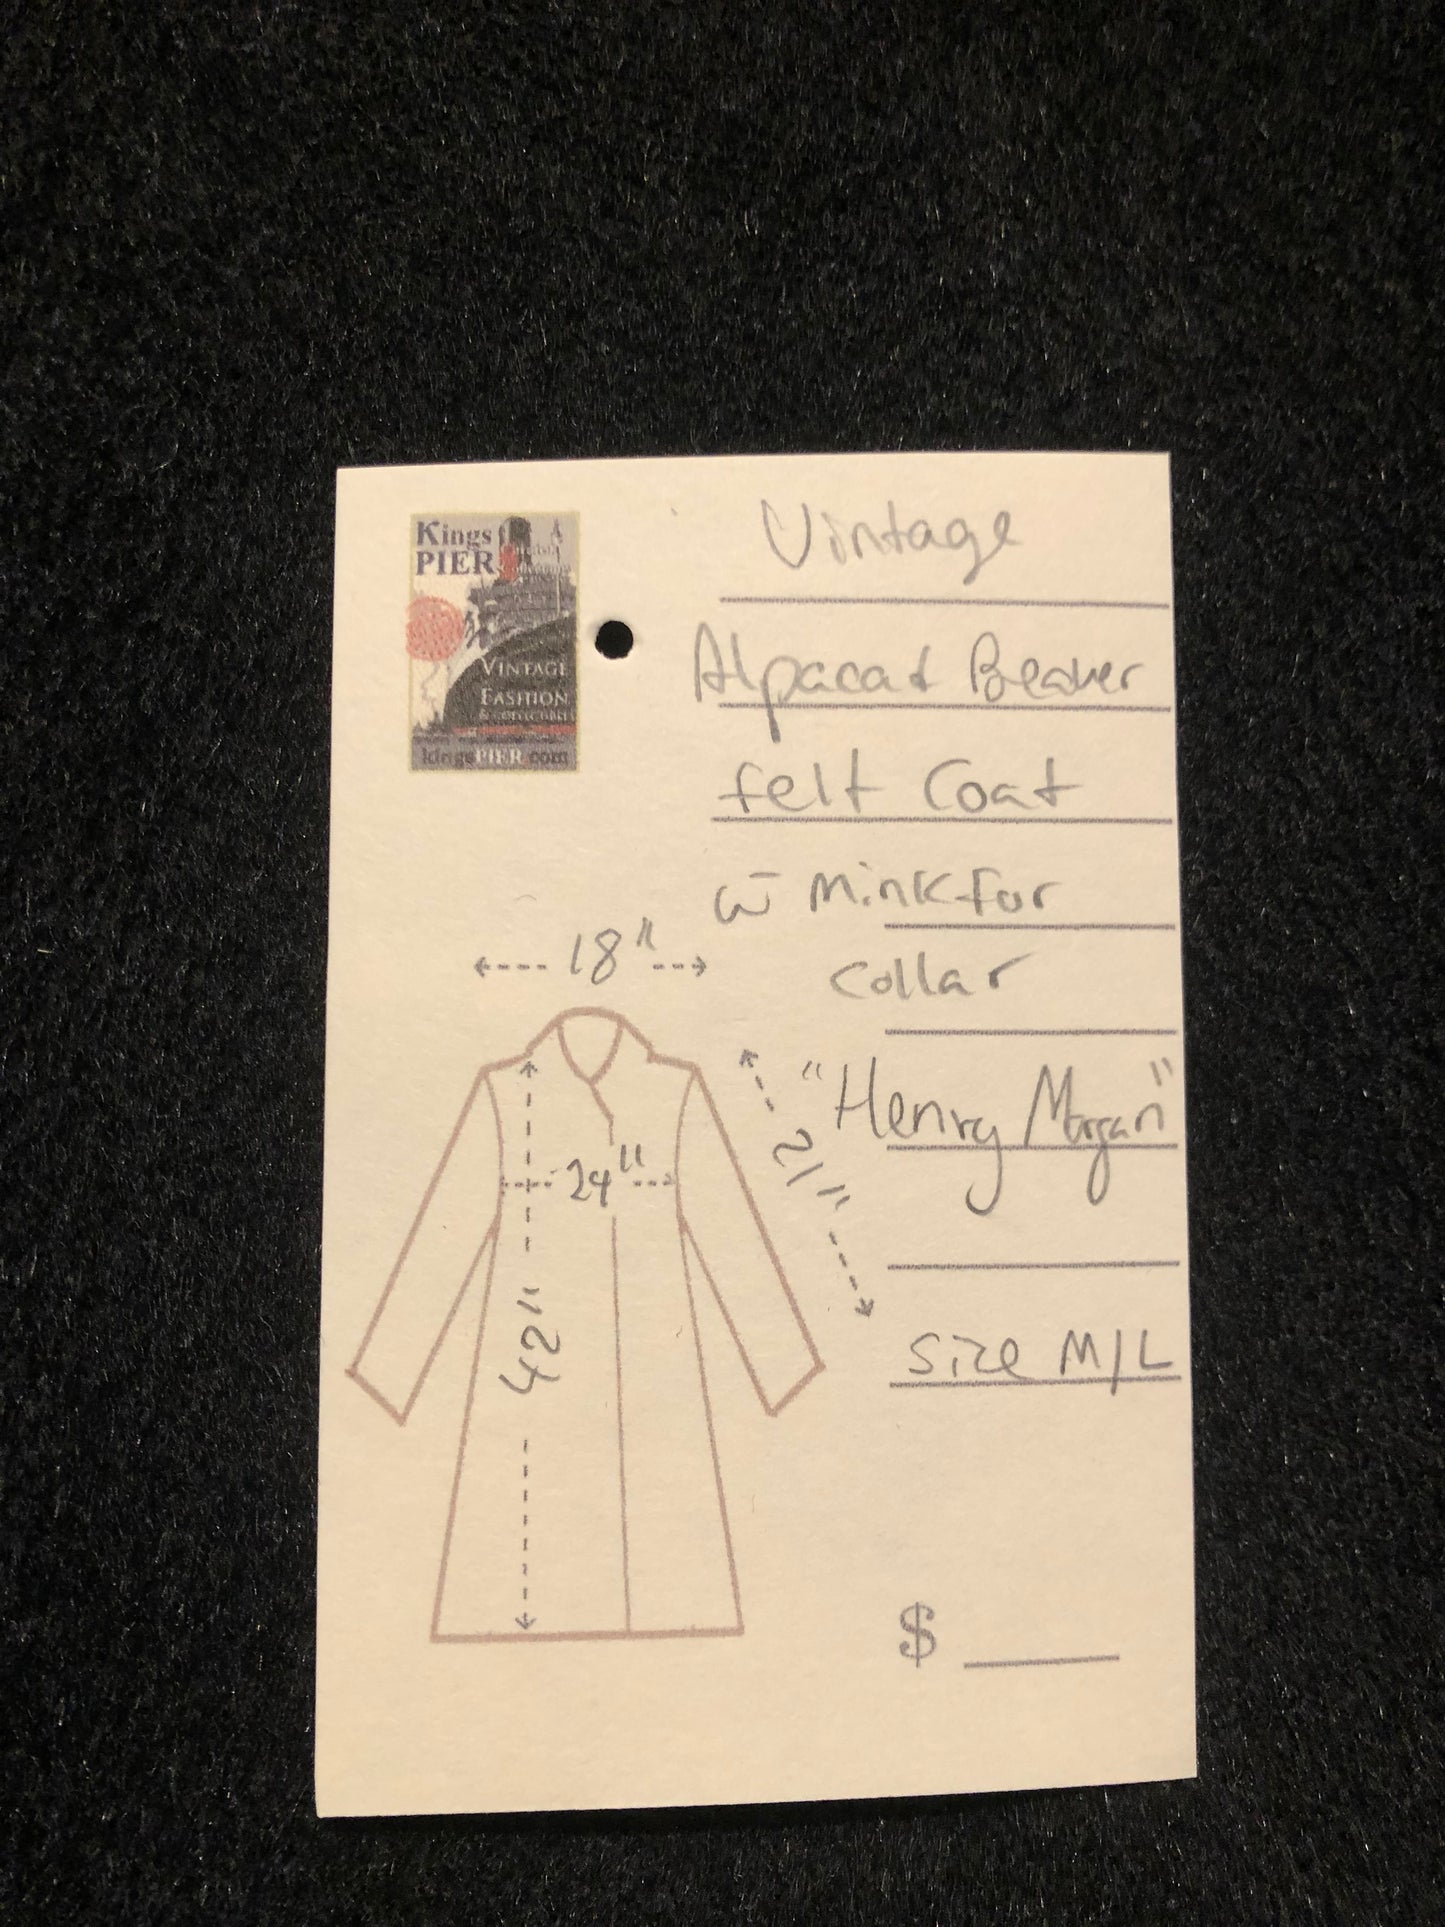 Kings
PIER
VINTAGE
FASHION
& COLLECTIBLES
kingsPIER.com
Vintage
Alpaca & Beaver
felt Coat
w̄ Mink fur
collar
"Henry Morgan"
size M/L
18"
24"
21"
42"
$